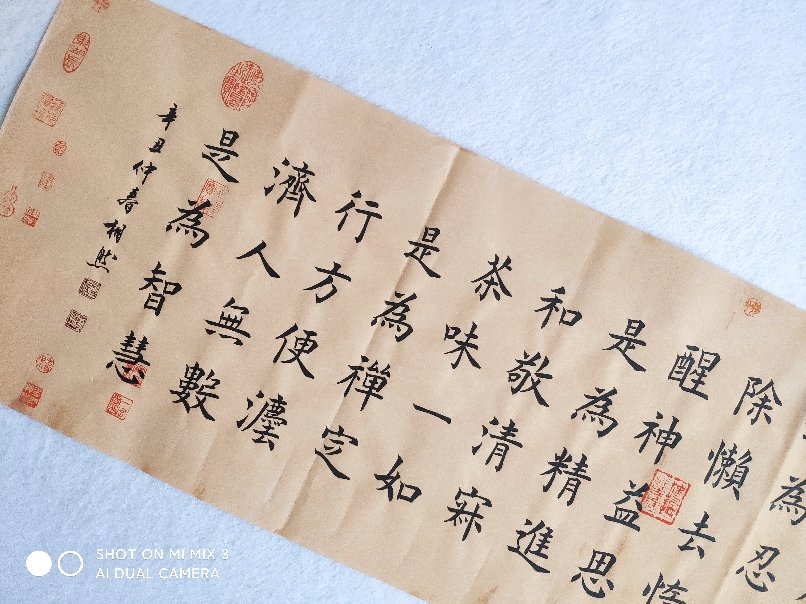 為忍
除懶去惰
醒神益思
是為精進
和敬清寂
茶味一如
是為禪定
行方便
濟人無數
是為智慧
辛丑仲春相然
SHOT ON MI MIX 3
AI DUAL CAMERA